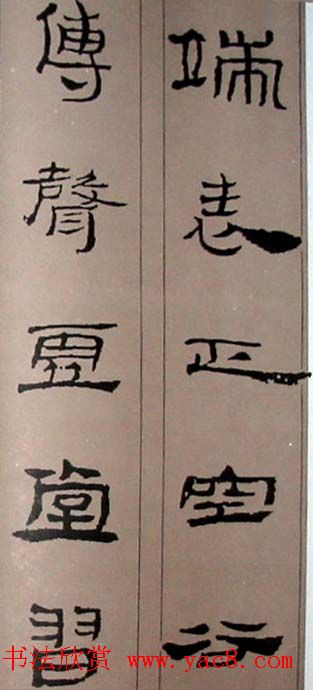 端表正空谷
傳聲虛堂習
书法欣赏 www.yac8.com